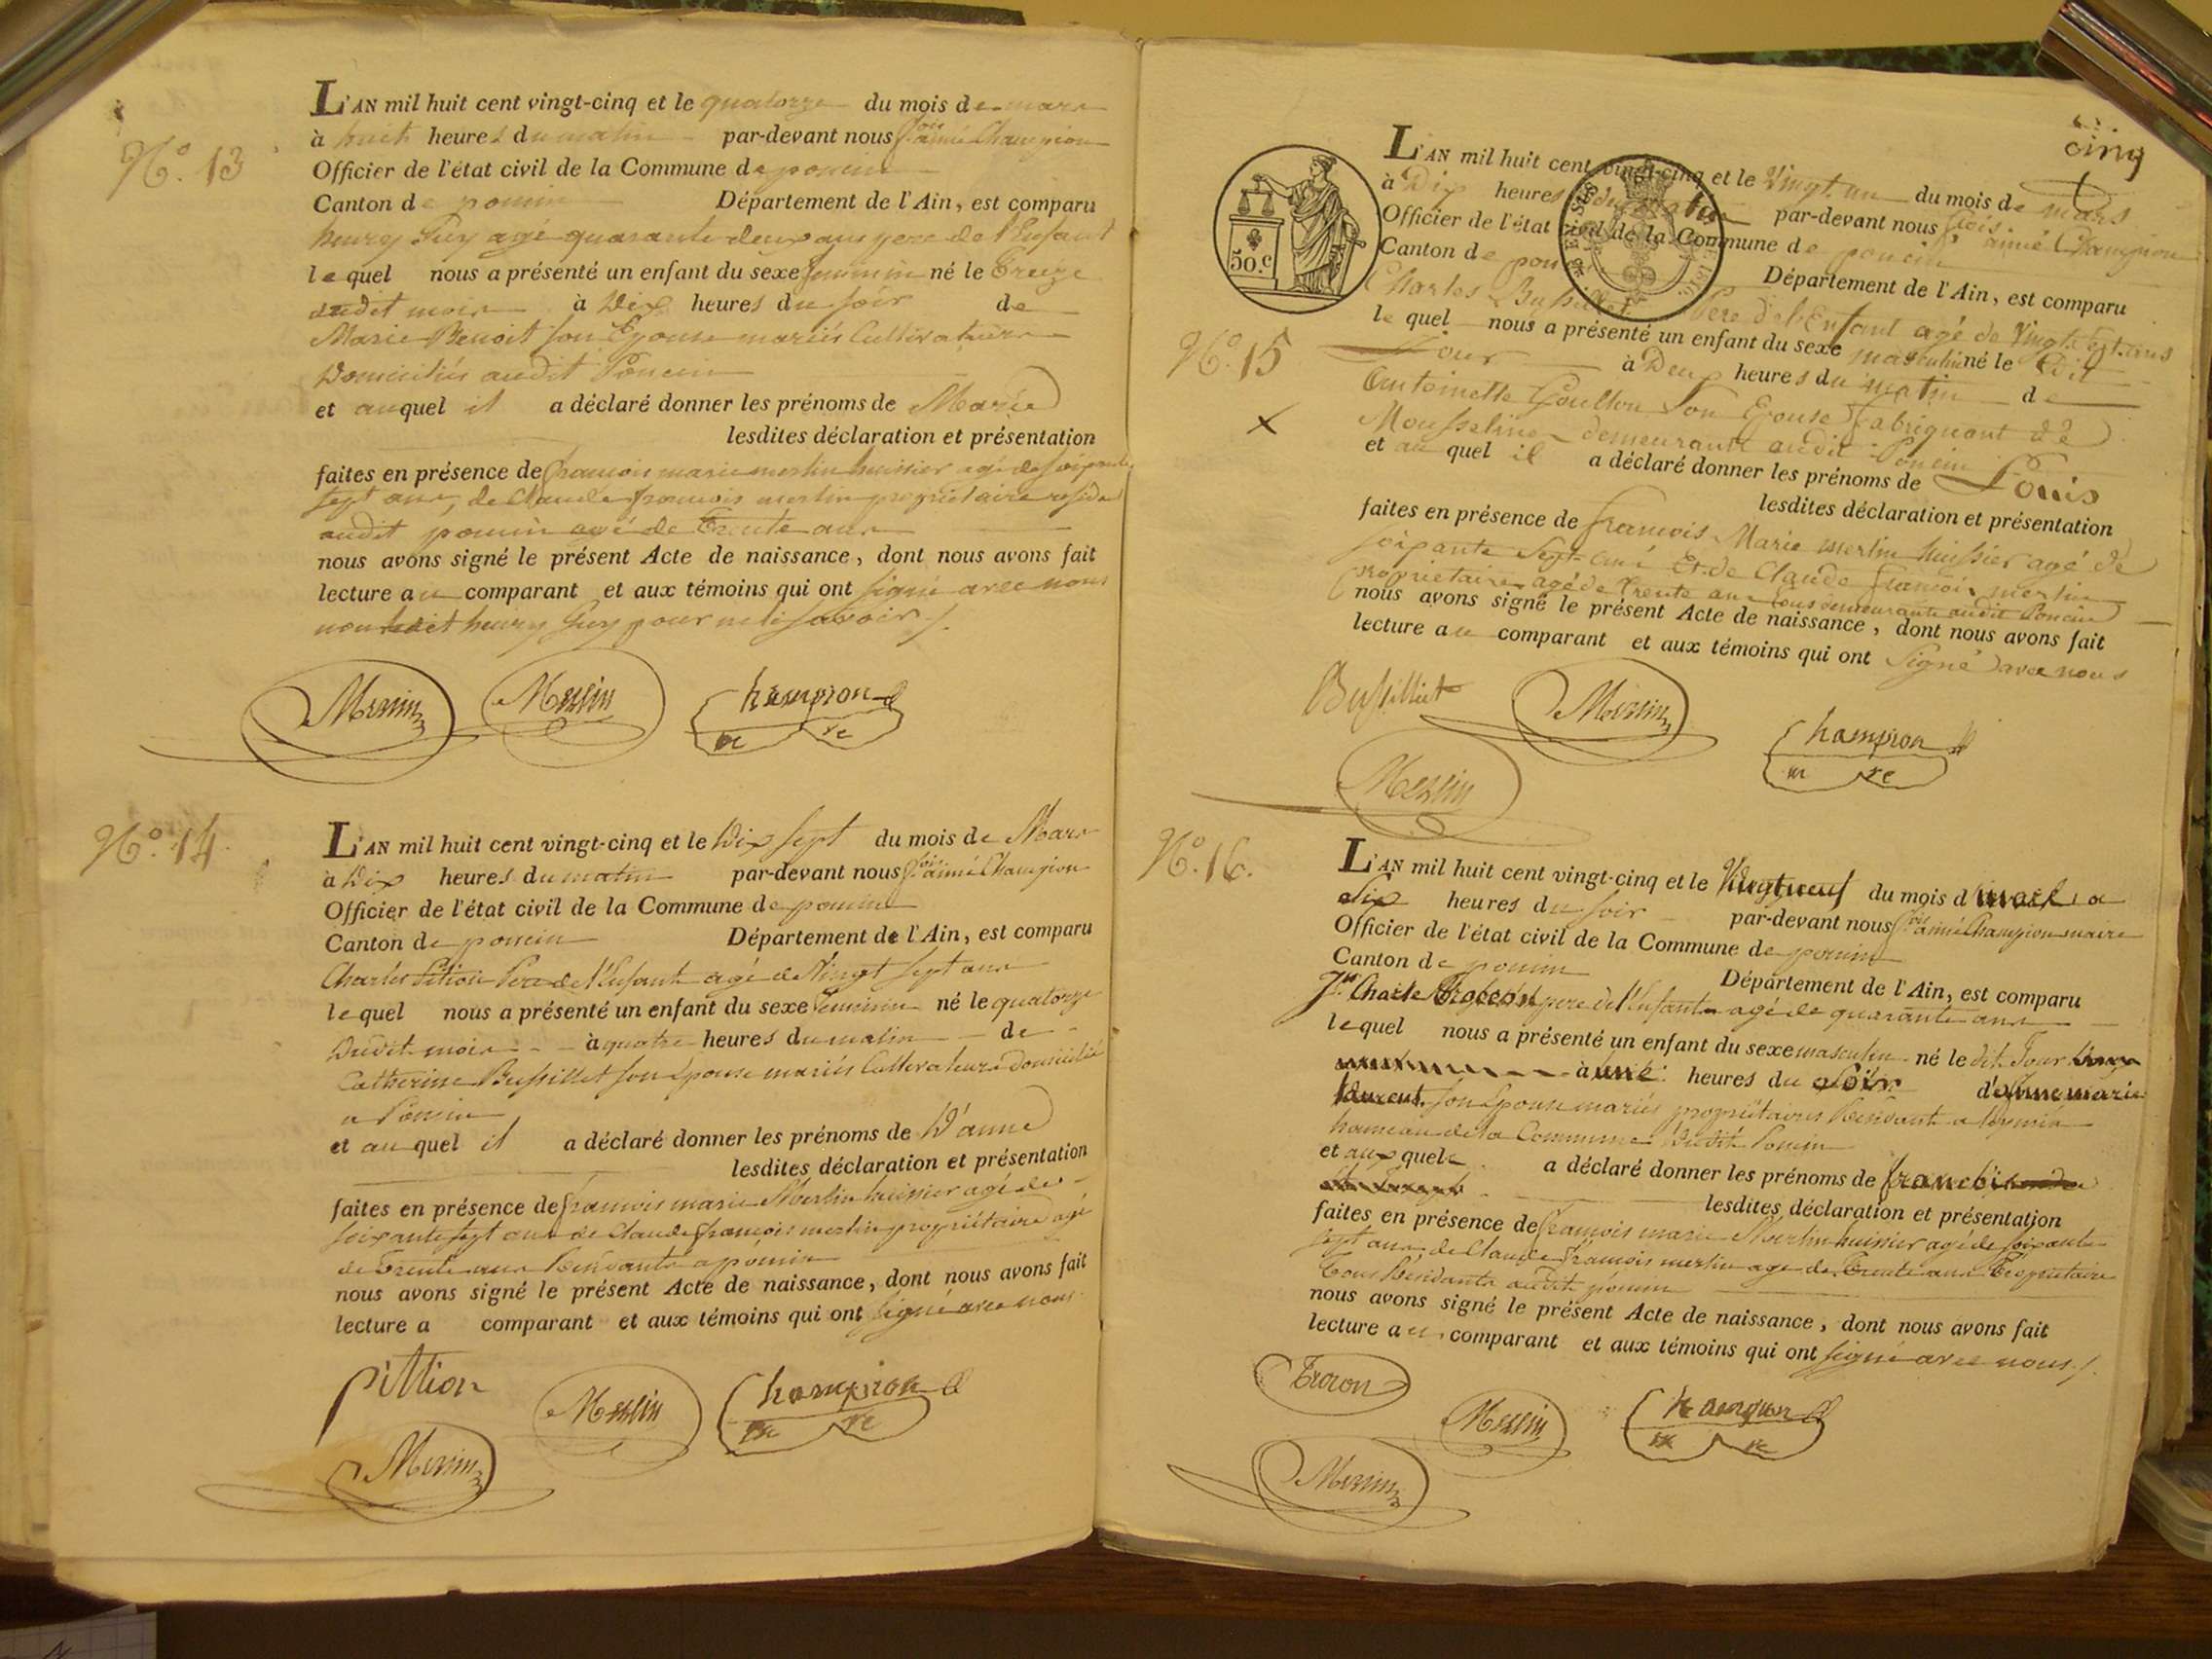 N.° 13
L'AN mil huit cent vingt-cinq et le quatorze du mois de mars
à huit heures du matin par-devant nous f.ois aimé Champion
Officier de l'état civil de la Commune de poncin
Canton de poncin Département de l'Ain, est comparu
henry Guy agé quarante deux ans pere de l'Enfant
lequel nous a présenté un enfant du sexe feminin né le treize
dudit mois à Dix heures du soir de
Marie Benoit son Epouse mariés Cultivateurs
Domiciliés audit Poncin
et auquel il a déclaré donner les prénoms de Marie
lesdites déclaration et présentation
faites en présence de francois marie merlin huissier agé de soixante
sept ans, de Claude francois merlin propriétaire
audit poncin agé de trente ans
nous avons signé le présent Acte de naissance, dont nous avons fait
lecture au comparant et aux témoins qui ont signé avec nous
non ledit henry Guy pour ne le savoir ./.
Merlin Merlin Champion
mre
N.° 14.
L'AN mil huit cent vingt-cinq et le Dix sept du mois de Mars
à Dix heures du matin par-devant nous f.ois aimé Champion
Officier de l'état civil de la Commune de poncin
Canton de poncin Département de l'Ain, est comparu
Charles Pition Pere de l'Enfant agé de Vingt sept ans
lequel nous a présenté un enfant du sexe feminin né le quatorze
Dudit mois à quatre heures du matin de
Catherine Bussillet son Epouse mariés Cultivateurs Domiciliés
a Poncin
et auquel il a déclaré donner les prénoms de D'anne
lesdites déclaration et présentation
faites en présence de francois marie Merlin huissier agé de
soixante sept ans de Claude francois merlin propriétaire agé
de trente ans Résidants a poncin
nous avons signé le présent Acte de naissance, dont nous avons fait
lecture a comparant et aux témoins qui ont signé avec nous
pittion Merlin Champion
mre
Merlin
cinq
50.c
N.° 15
L'AN mil huit cent vingt-cinq et le Vingt un du mois de mars
à Dix heures du matin par-devant nous f.ois aimé Champion
Officier de l'état civil de la Commune de poncin
Canton de poncin Département de l'Ain, est comparu
Charles Bussillet Pere de l'Enfant agé de Vingt Sept ans
lequel nous a présenté un enfant du sexe masculin né le Dit
Jour à Deux heures du matin de
Antoinette Goullon Son Epouse fabriquant de
Mousseline demeurant audit Poncin
et auquel il a déclaré donner les prénoms de Louis
lesdites déclaration et présentation
faites en présence de francois Marie merlin huissier agé de
soixante Sept ans Et de Claude francois merlin
proprietaire agé de trente ans tous demeurants audit Poncin
nous avons signé le présent Acte de naissance, dont nous avons fait
lecture au comparant et aux témoins qui ont Signé avec nous
Bussilliet Merlin
Champion
mre
Merlin
N.° 16.
L'AN mil huit cent vingt-cinq et le Vingt neuf du mois de mars a
Six heures du soir par-devant nous f.ois aimé Champion maire
Officier de l'état civil de la Commune de poncin
Canton de poncin Département de l'Ain, est comparu
pere de l'Enfant agé de quarante ans
lequel nous a présenté un enfant du sexe masculin né le dit Jour
à une heures du soir d'anne marie
Laurent son Epouse mariés propriétaires Résidant a
hameau de la Commune Dudit Poncin
et auxquels a déclaré donner les prénoms de francois
lesdites déclaration et présentation
faites en présence de francois marie Merlin huissier agé de soixante
sept ans de Claude francois merlin age de trente ans Proprietaire
tous Résidants audit poncin
nous avons signé le présent Acte de naissance, dont nous avons fait
lecture au comparant et aux témoins qui ont signé avec nous ./.
Merlin Champion
mre
Merlin